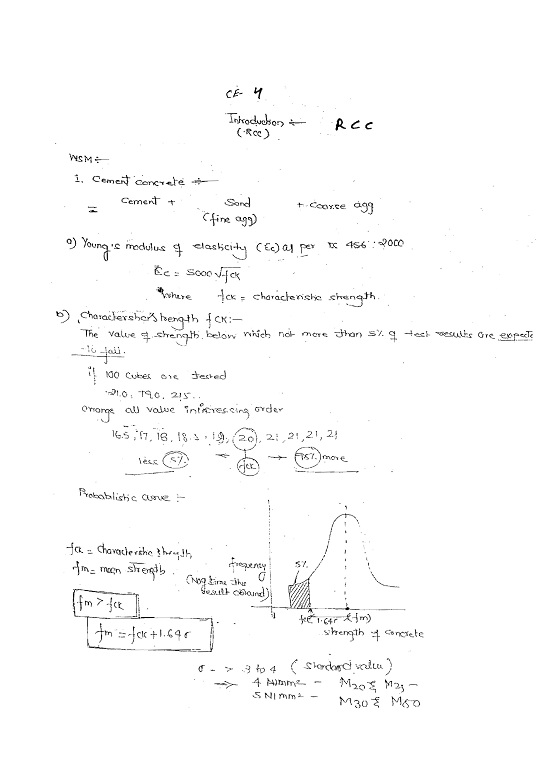 CE- 4
Introduction :-
RCC
(RCC)
WSM :-
1. Cement concrete :-
= Cement + Sand + Coarse agg
(fine agg)
a) Young's modulus of elasticity (Ec) as per IS 456 : 2000
Ec = 5000 √fck
Where fck = characteristic strength.
b) Characteristic strength fck:-
The value of strength below which not more than 5% of test results are expecte
-to fail.
if 100 cubes are tested
21.0, 19.0, 21.5..
arrange all value in increasing order
16.5, 17, 18, 18.5, 19, 20, 21, 21, 21, 21
less 5% ← fck → 95% more
Probablistic curve :-
fck = characteristic strength
fm = mean strength.
fm > fck
fm = fck + 1.64σ
frequency
(No of time the
result obtained)
5%
fck 1.64σ (fm)
strength of concrete
σ - > 3 to 4 (standard value)
→ 4 N/mm² - M20 & M25 -
5 N/mm² - M30 & M50